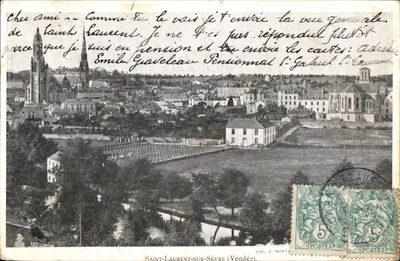 Cher ami -- Comme tu le vois je t'envoie la vue générale
de Saint Laurent, Je ne t'ai pas répondu plutôt
parce que j'étais en pension et tu envoie les cartes : adresse
Emile Graveleau Pensionnat St Gabriel St Laurent
SAINT-LAURENT-SUR-SÈVRE (Vendée).
5 5
POSTES